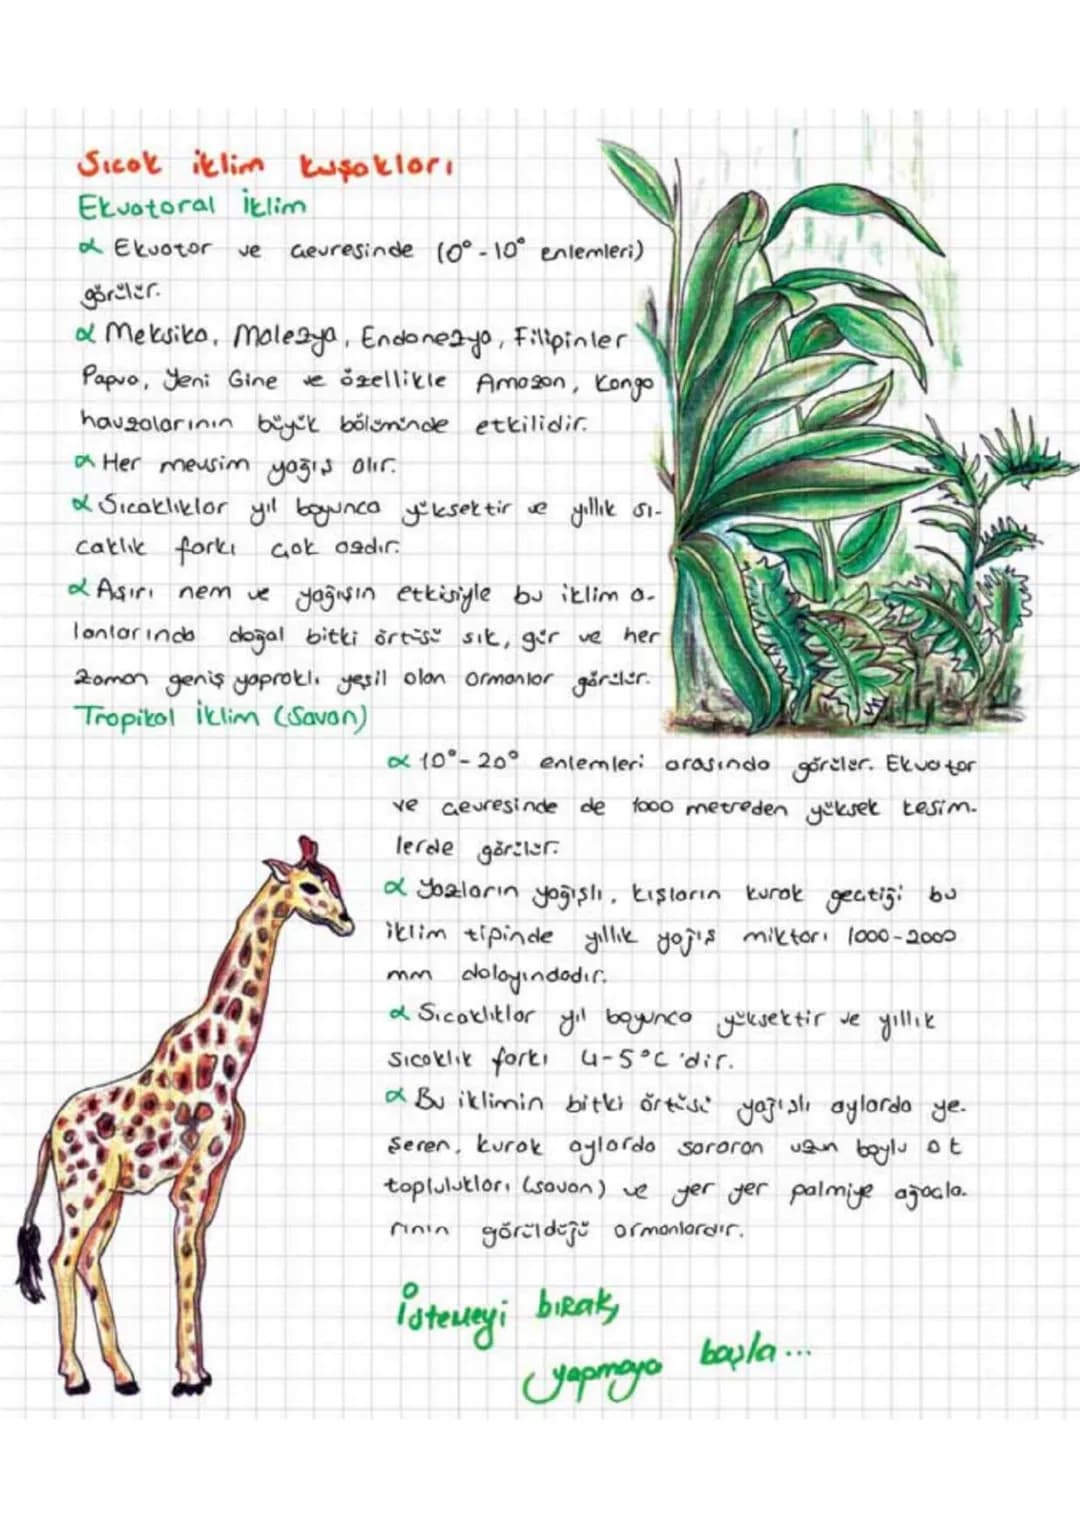 Sıcak iklim kuşakları
Ekvatoral İklim
α Ekvator ve çevresinde (0°-10° enlemleri)
görülür.
α Meksika, Malezya, Endonezya, Filipinler
Papua, Yeni Gine ve özellikle Amazon, Kongo
havzalarının büyük bölümünde etkilidir.
α Her mevsim yağış alır.
α Sıcaklıklar yıl boyunca yüksektir ve yıllık sı-
caklık farkı çok azdır.
α Aşırı nem ve yağışın etkisiyle bu iklim a-
lanlarında doğal bitki örtüsü sık, gür ve her
zaman geniş yapraklı yeşil olan ormanlar görülür.
Tropikal İklim (Savan)
α 10°-20° enlemleri arasında görülür. Ekvator
ve çevresinde de 1000 metreden yüksek kesim-
lerde görülür.
α Yazların yağışlı, kışların kurak geçtiği bu
iklim tipinde yıllık yağış miktarı 1000-2000
mm dolayındadır.
α Sıcaklıklar yıl boyunca yüksektir ve yıllık
sıcaklık farkı 4-5°C 'dir.
α Bu iklimin bitki örtüsü yağışlı aylarda ye-
şeren, kurak aylarda sararan uzun boylu ot
toplulukları (savan) ve yer yer palmiye ağaçla-
rının görüldüğü ormanlardır.
İstemeyi bırak,
yapmaya başla...